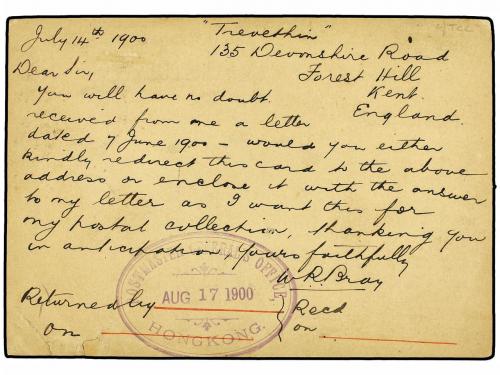 July 14th 1900
"Trevethin"
135 Devonshire Road
Forest Hill
Kent.
England.
Dear Sir,
You will have no doubt
received from me a letter
dated 7 June 1900 – would you either
kindly redirect this card to the above
address or enclose it with the answer
to my letter as I want this for
my postal collection, thanking you
in anticipation, Yours faithfully
W R Bray
POSTMASTER GENERAL'S OFFICE,
AUG 17 1900
HONGKONG.
Returned by
Recd
on
on